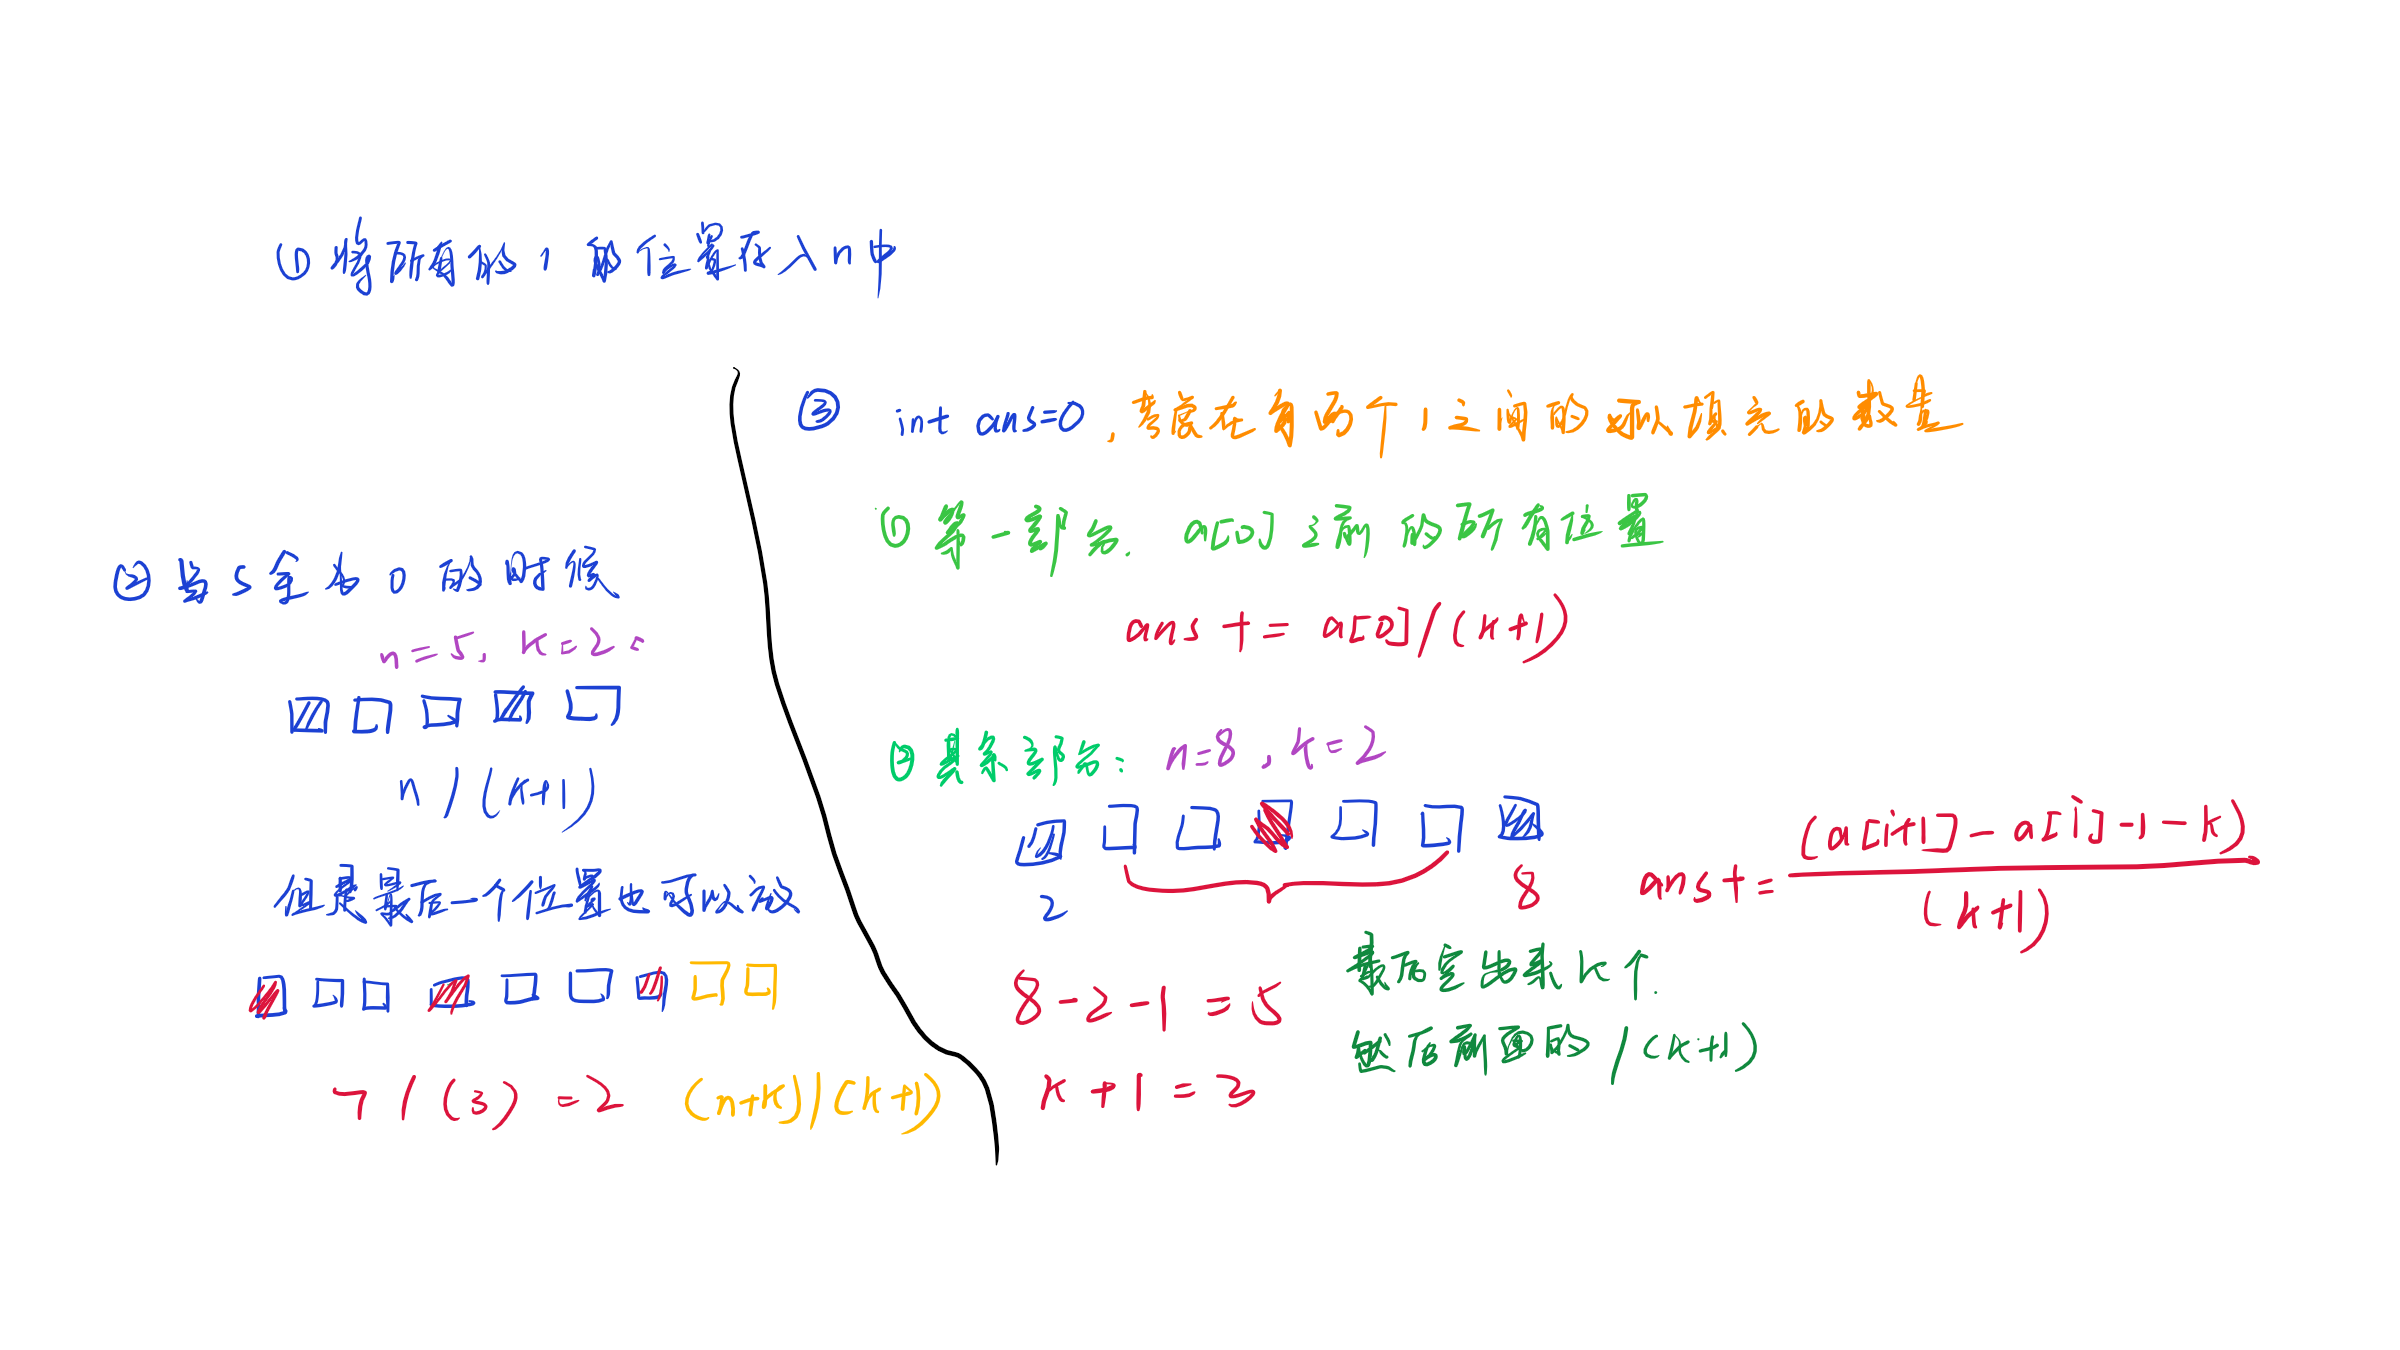 ① 将所有的 1 的位置存入 n 中
② 当 s 全为 0 的时候
n=5, k=2
n/(k+1)
但是最后一个位置也可以放
7/(3)=2 (n+k)/(k+1)
③ int ans=0,考虑在每两个1之间的可以填充的数量
① 第一部分. a[0]之前的所有位置
ans += a[0]/(k+1)
② 其余部分: n=8, k=2
2 8
ans += (a[i+1]-a[i]-1-k)
(k+1)
8-2-1=5
k+1=3
最后空出来k个.
然后前面的/(k+1)